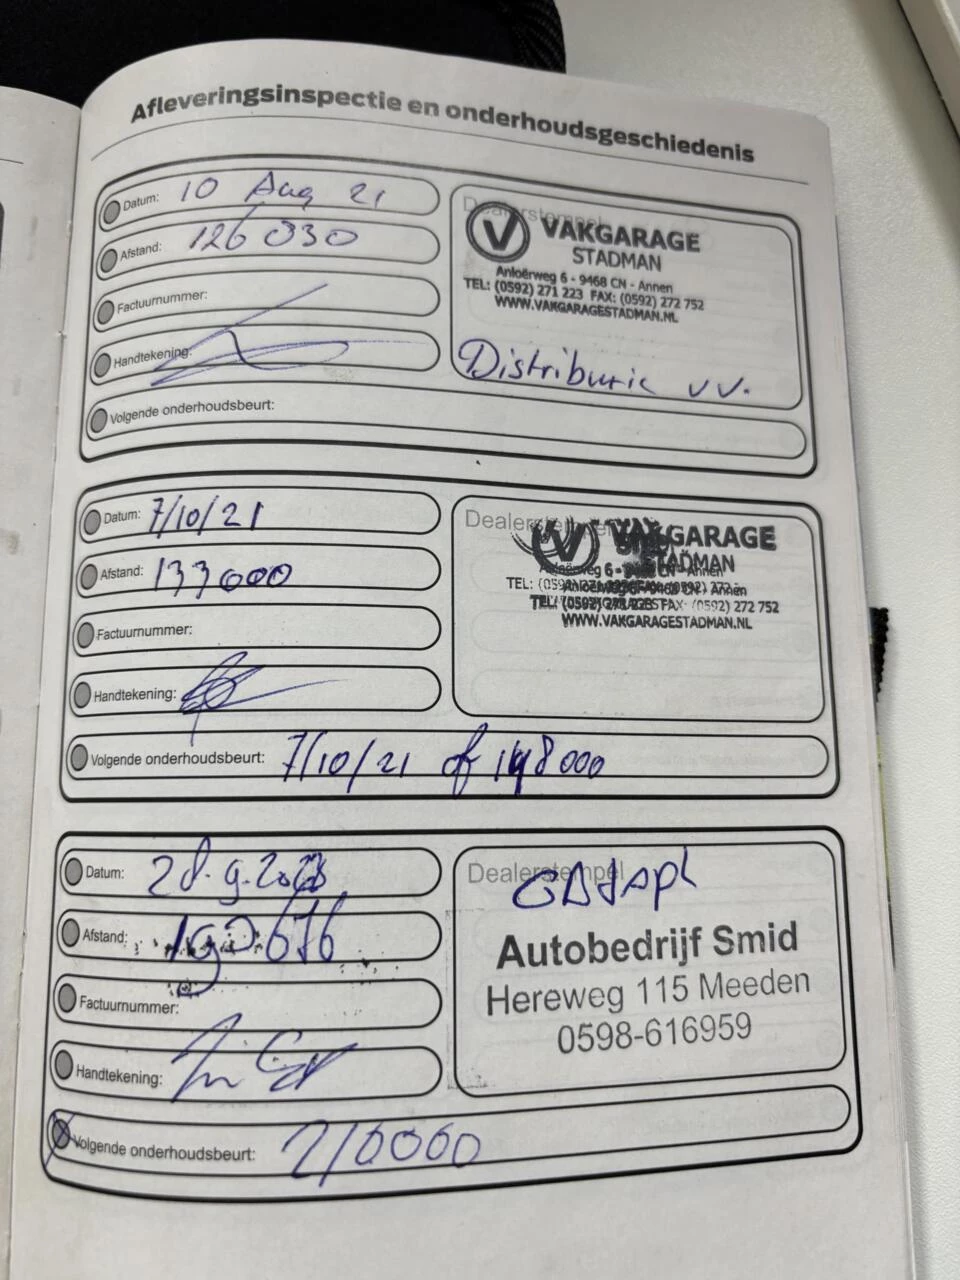 Afleveringsinspectie en onderhoudsgeschiedenis
Datum: 10 Aug 21
Afstand: 126 030
Factuurnummer:
Handtekening:
Volgende onderhoudsbeurt:
Dealerstempel
VAKGARAGE
STADMAN
Anloërweg 6 - 9468 CN - Annen
TEL: (0592) 271 223 FAX: (0592) 272 752
WWW.VAKGARAGESTADMAN.NL
Distributie vv.
Datum: 7/10/21
Afstand: 133000
Factuurnummer:
Handtekening:
Volgende onderhoudsbeurt: 7/10/21 of 148000
VAKGARAGE
STADMAN
TEL: (0592) 271 223 FAX: (0592) 272 752
WWW.VAKGARAGESTADMAN.NL
Datum: 28.9.2023
Afstand:
Factuurnummer:
Handtekening:
Volgende onderhoudsbeurt: 210000
Dealerstempel
Autobedrijf Smid
Hereweg 115 Meeden
0598-616959